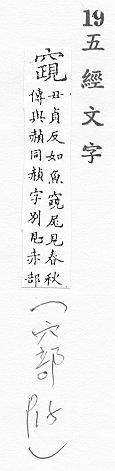 19 五經文字
竀
丑貞反如魚竀尾見春秋
傳與赬同赬字別見赤部
(穴部